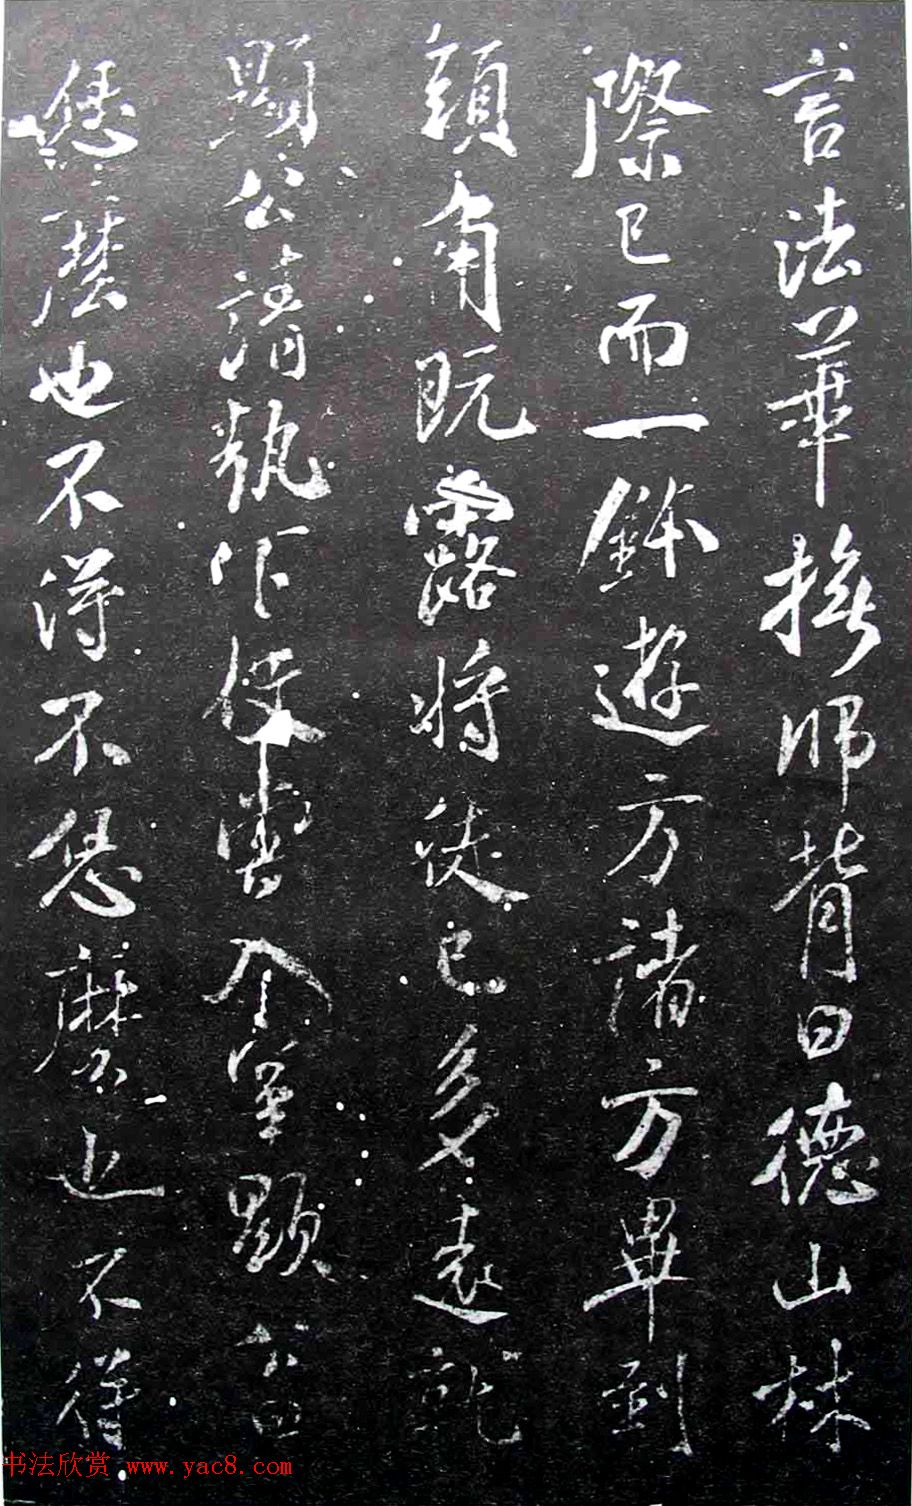 言法華撫師背曰德山林
際已而一鉢遊方諸方畢到
頭角既露將徒已多遠就
顯公請執作役嘗入室顯
恁麼也不得不恁麼也不得
书法欣赏 www.yac8.com